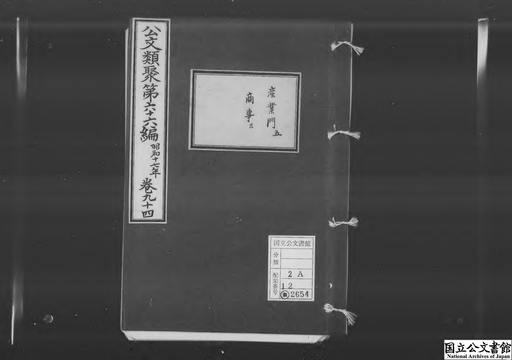 公文類聚第六十六編 昭和十七年 巻九十四
産業門五
商事二
国立公文書館
分類
配架番号
2A
12
2654
国立公文書館
National Archives of Japan